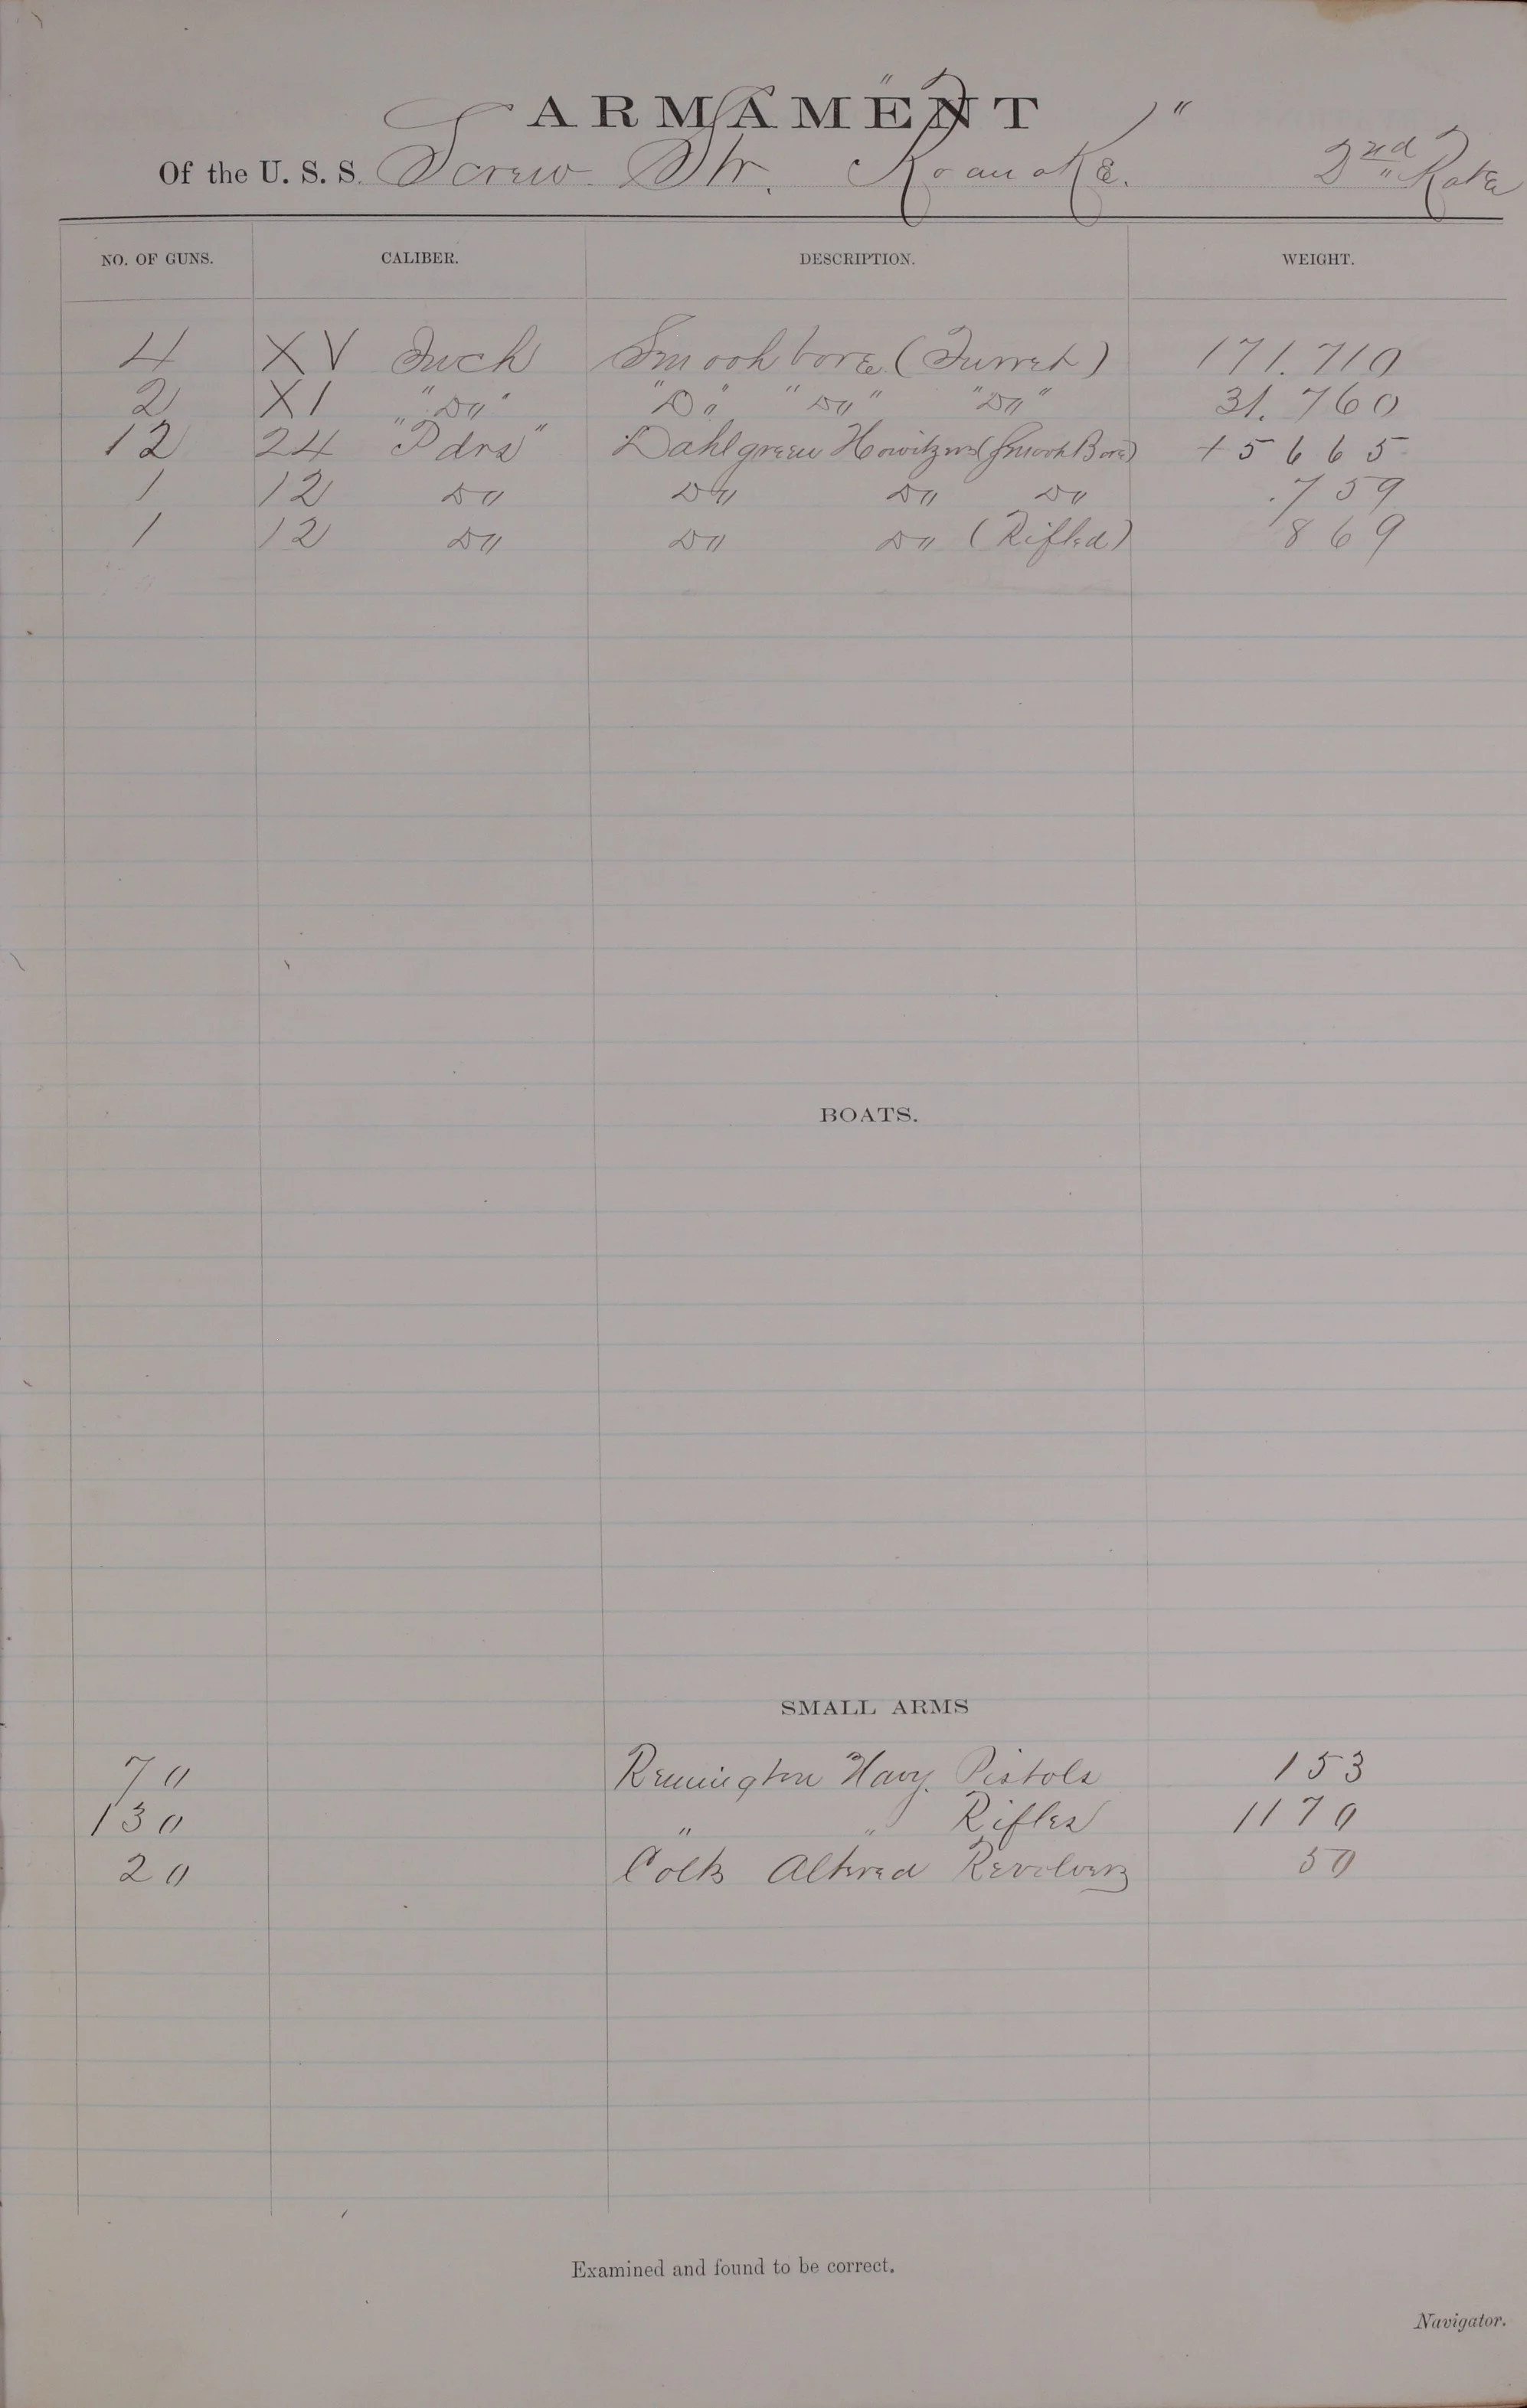 ARMAMENT
Of the U. S. S. Screw Str. "Roanoke." 2nd Rate
NO. OF GUNS. CALIBER. DESCRIPTION. WEIGHT.
4 XV Inch Smooth bore (Turret) 171.710
2 XI " Do " " Do " " Do " " Do " 31.760
12 24 "Pdrs" Dahlgreen Howitzers (Smooth Bore) 15665
1 12 Do Do Do Do .759
1 12 Do Do Do (Rifled) 869
BOATS.
SMALL ARMS
70 Remington Navy Pistols 153
130 " " Rifles 1170
20 Colts Altered Revolvers 50
Examined and found to be correct.
Navigator.